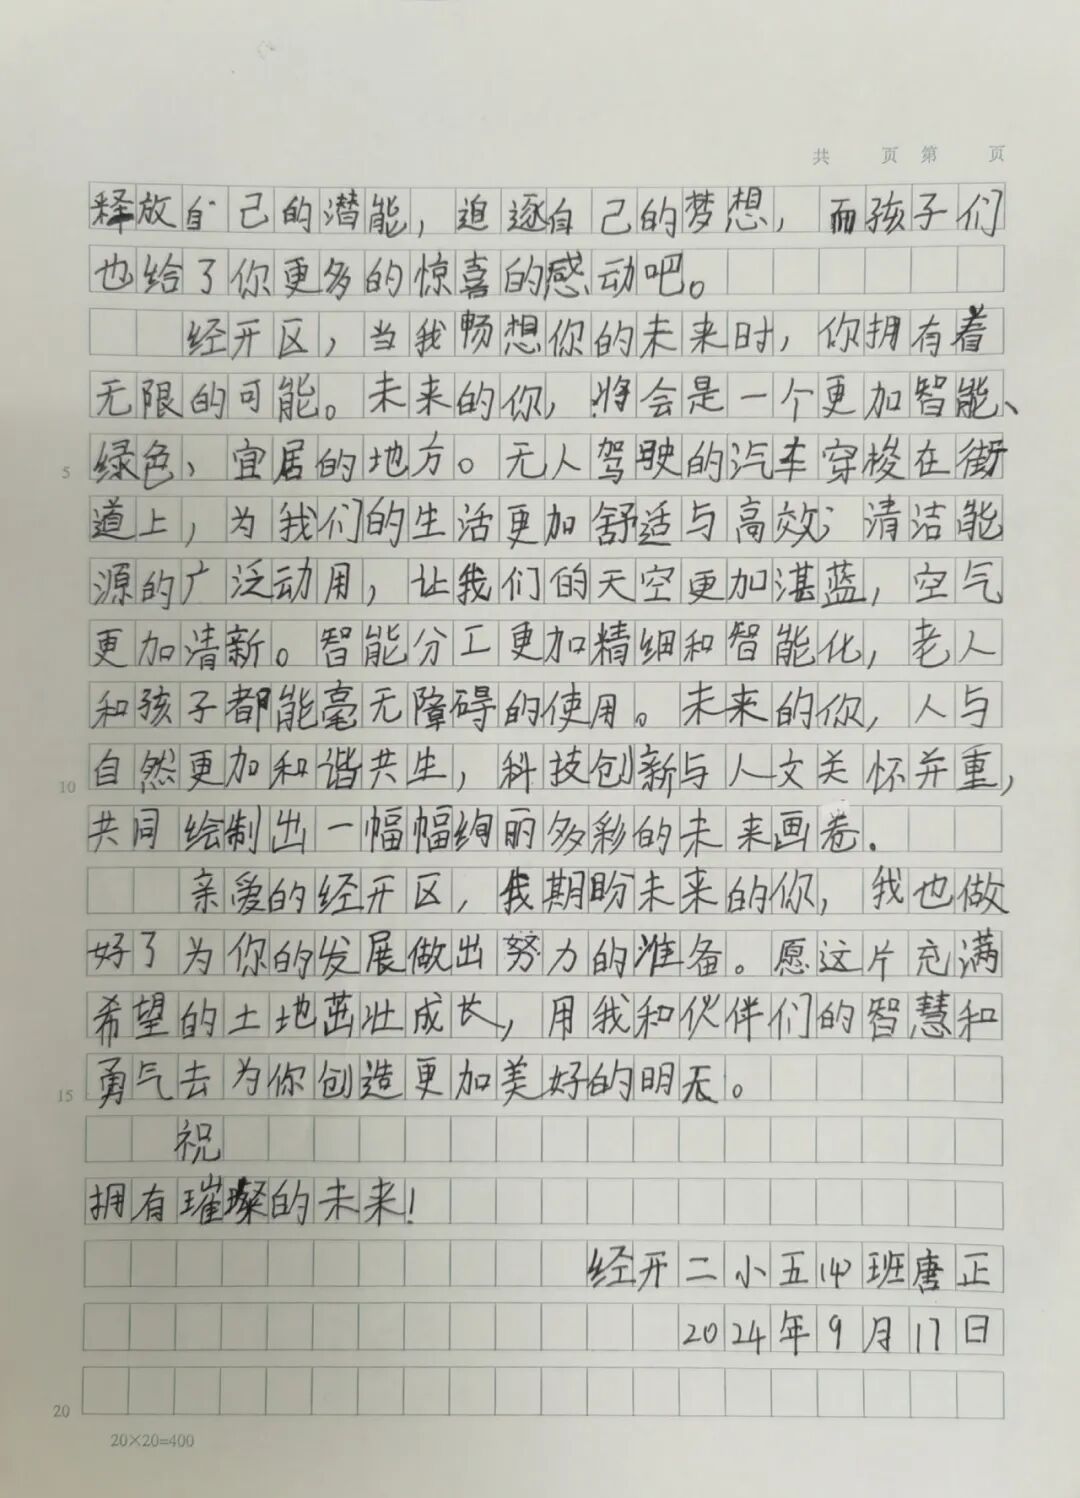 共 页 第 页
释放自己的潜能，追逐自己的梦想，而孩子们
也给了你更多的惊喜的感动吧。
经开区，当我畅想你的未来时，你拥有着
无限的可能。未来的你，将会是一个更加智能、
5 绿色、宜居的地方。无人驾驶的汽车穿梭在街
道上，为我们的生活更加舒适与高效；清洁能
源的广泛动用，让我们的天空更加湛蓝，空气
更加清新。智能分工更加精细和智能化，老人
和孩子都能毫无障碍的使用。未来的你，人与
10 自然更加和谐共生，科技创新与人文关怀并重，
共同绘制出一幅幅绚丽多彩的未来画卷.
亲爱的经开区，我期盼未来的你，我也做
好了为你的发展做出努力的准备。愿这片充满
希望的土地茁壮成长，用我和伙伴们的智慧和
15 勇气去为你创造更加美好的明天。
祝
拥有璀璨的未来！
经开二小五(4)班唐正
2024年9月17日
20
20×20=400